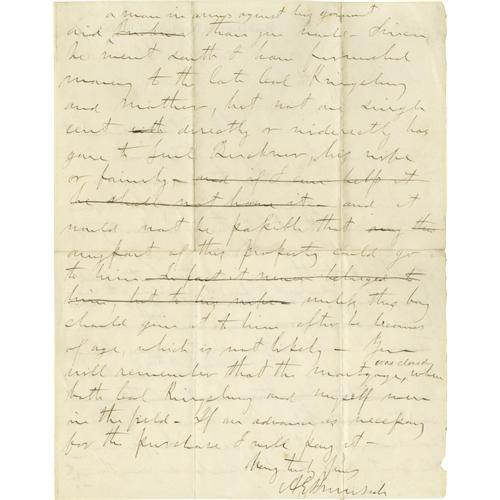 a man in arms against his government
aid Buckner than you made - Since
he went south I have furnished
money to the late Col Kingsbury
and Mother, but not one single
cent with directly or indirectly has
gone to Genl Buckner, his wife
or family - and if I can help it
he shall not have it - and it
would not be possible that any the
any part of this property could go
to him In fact it never belonged to
him, but to his wife - unless this boy
should give it to him after he becomes
of age, which is not likely - You
will remember that the mortgage was closed, when
both Col Kingsbury and myself were
in the field - If an advance is necessary
for the purchase I will pay it -
Very truly yours
A E Burnside